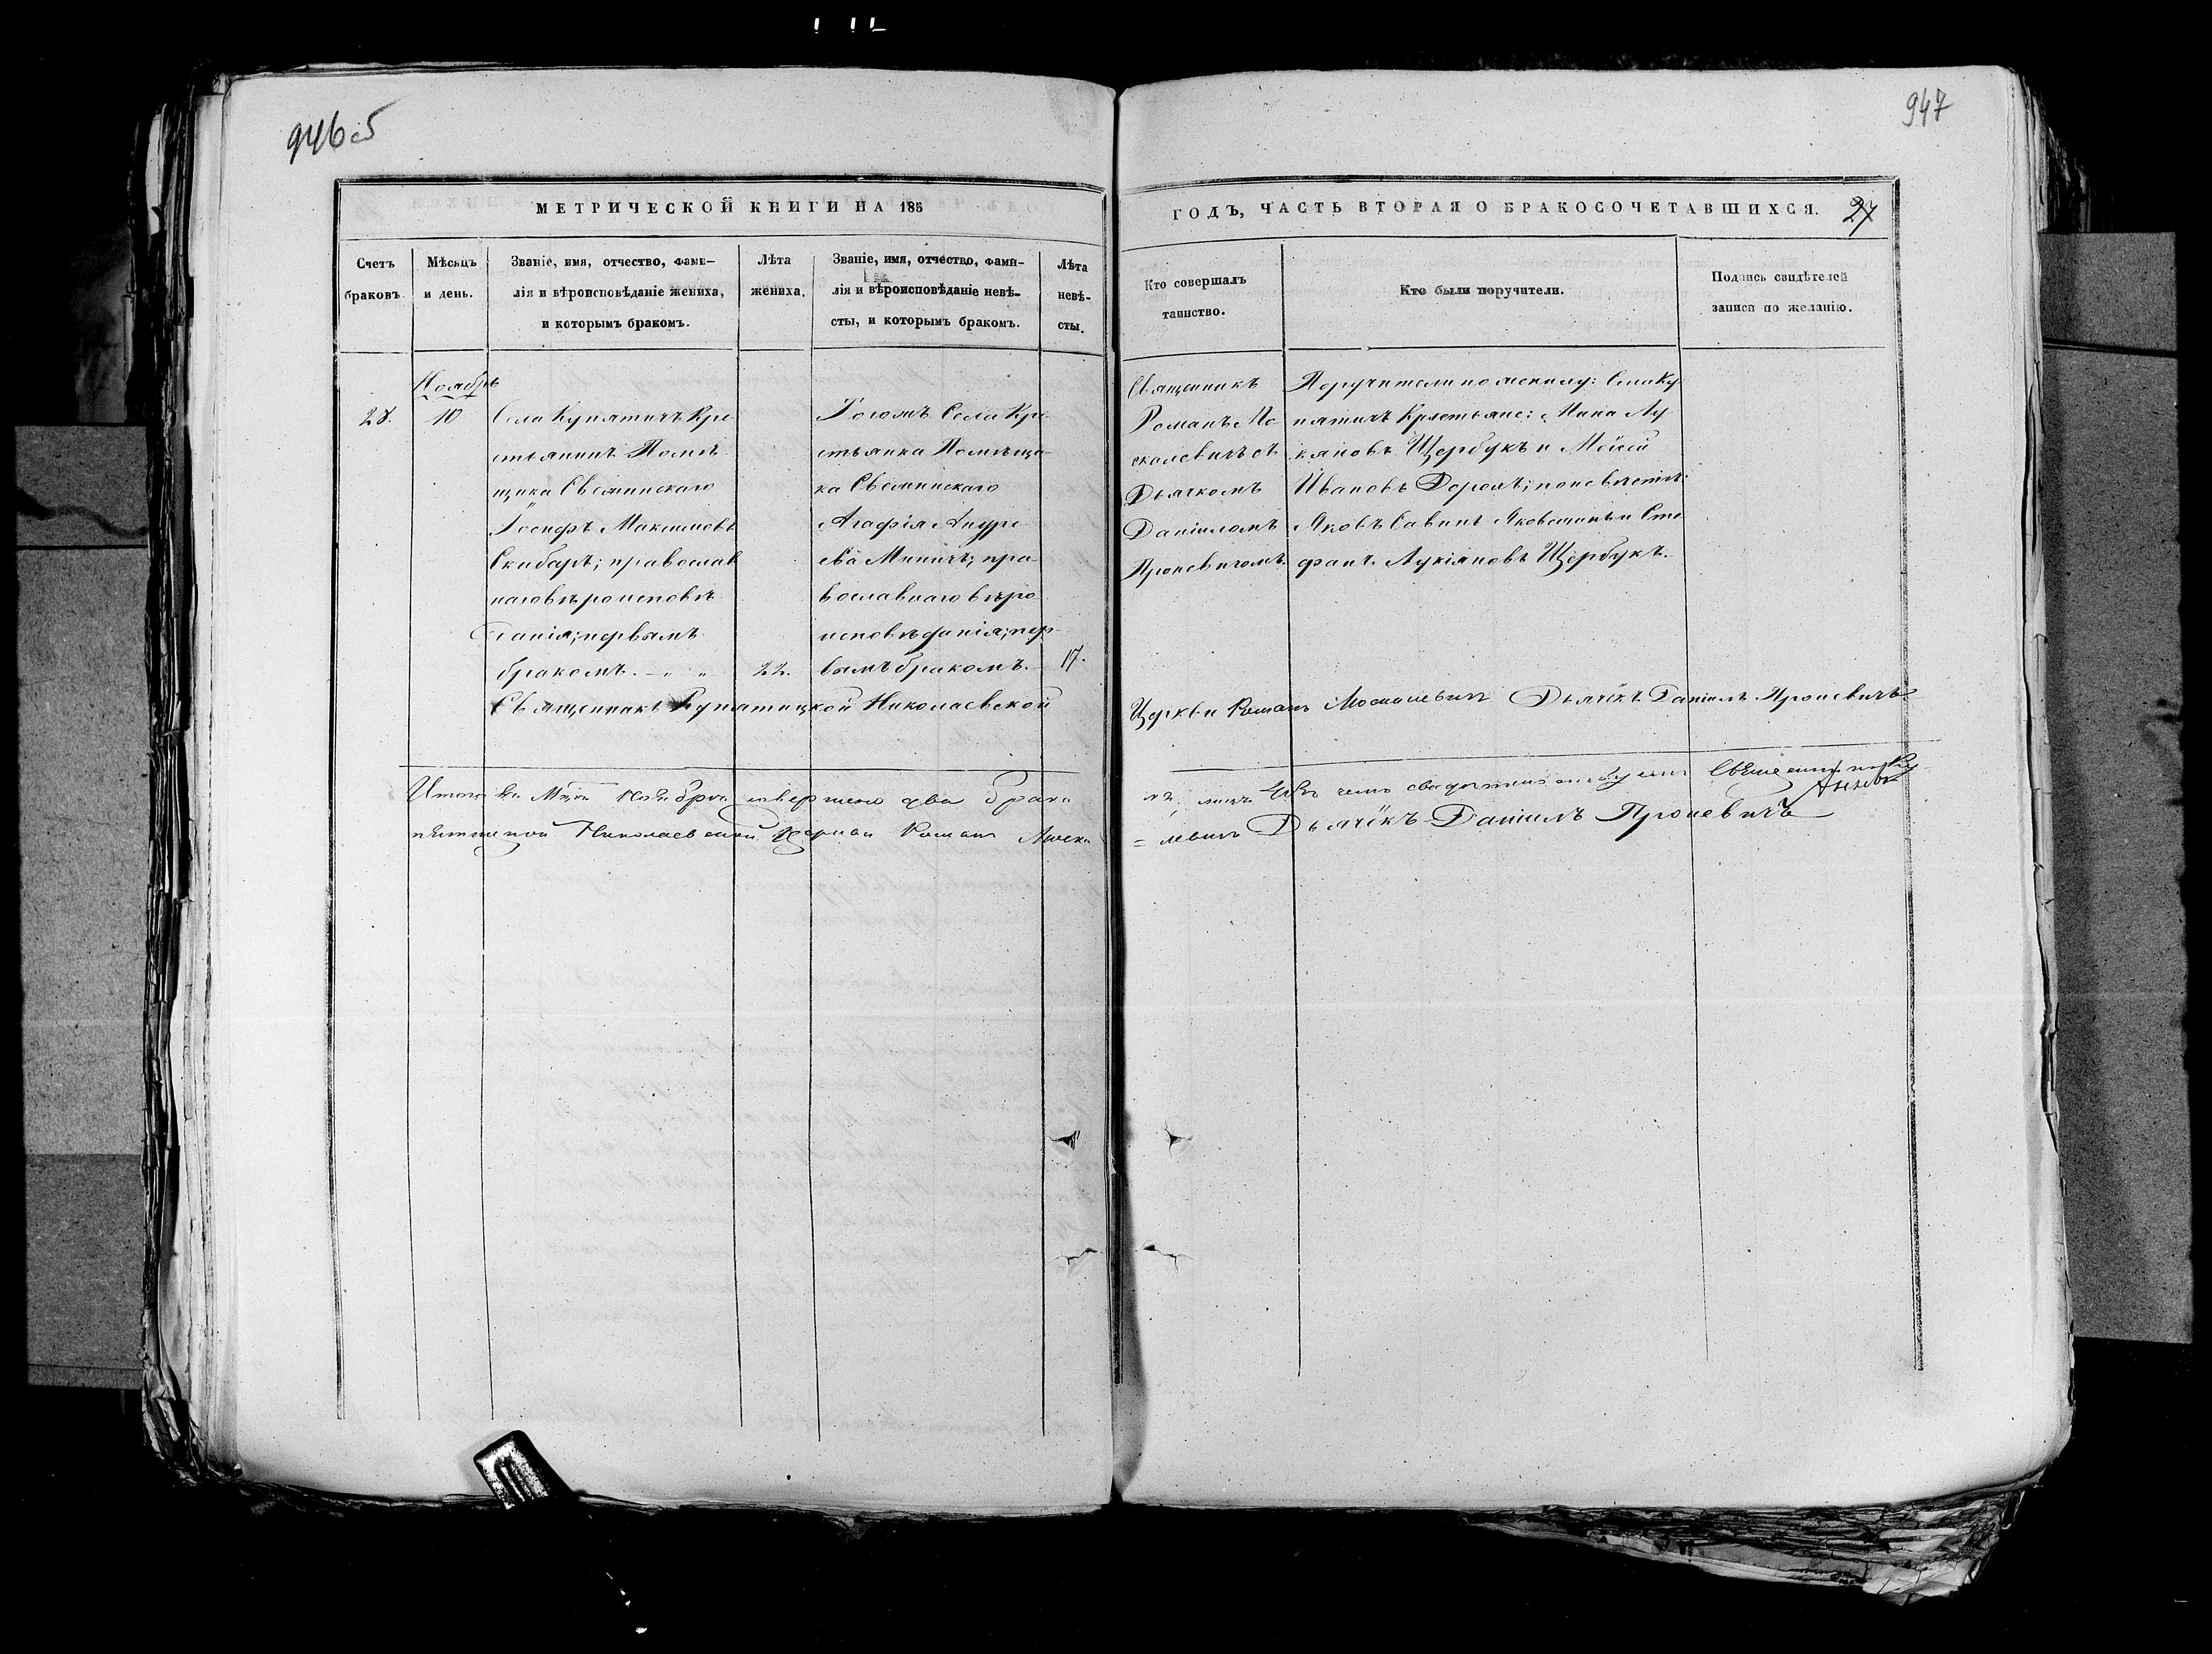 946об
947
МЕТРИЧЕСКОЙ КНИГИ НА 185
ГОДЪ, ЧАСТЬ ВТОРАЯ О БРАКОСОЧЕТАВШИХСЯ.
27
Счетъ
браковъ.
Мѣсяцъ
и день.
Званіе, имя, отчество, фами-
лія и вѣроисповѣданіе жениха,
и которымъ бракомъ.
Лѣта
жениха.
Званіе, имя, отчество, фами-
лія и вѣроисповѣданіе невѣ-
сты, и которымъ бракомъ.
Лѣта
невѣ-
сты.
Кто совершалъ
таинство.
Кто были поручители.
Подпись свидѣтелей
записи по желанію.
Ноябрь
10
Села Купятичъ Кре
стьянинъ Помѣ
щика
Іосифъ Максимовъ
Скибарь; православ
наго вѣроисповѣ
данія; первымъ
бракомъ.
22.
Тогожъ Села Кре
стьянка Помѣщи
ка
Агафія Андре
ева Миничъ; пра
вославнаго вѣро
исповѣданія; пер
вымъ бракомъ.
17.
Священникъ
Романъ Мо
сколевичъ съ
Дьячкомъ
Даніиломъ
Проневичомъ.
Поручители по жениху: Села Ку
пятичъ Крестьяне: Мина Лу
кяновъ Щербукъ и Мойсей
Ивановъ; по невѣстѣ:
Яковъ Савинъ и Сте
фанъ Лукіяновъ Щербукъ.
Священникъ Купятицкой Николаевской
Церкви Романъ Москалевичъ Дьячёкъ Даніилъ Проневичъ
Итого въ Мцѣ Ноябрѣ совершено два брака
Николаевской Церкви Романъ Моска
=левичъ Дьячёкъ Даніилъ Проневичъ